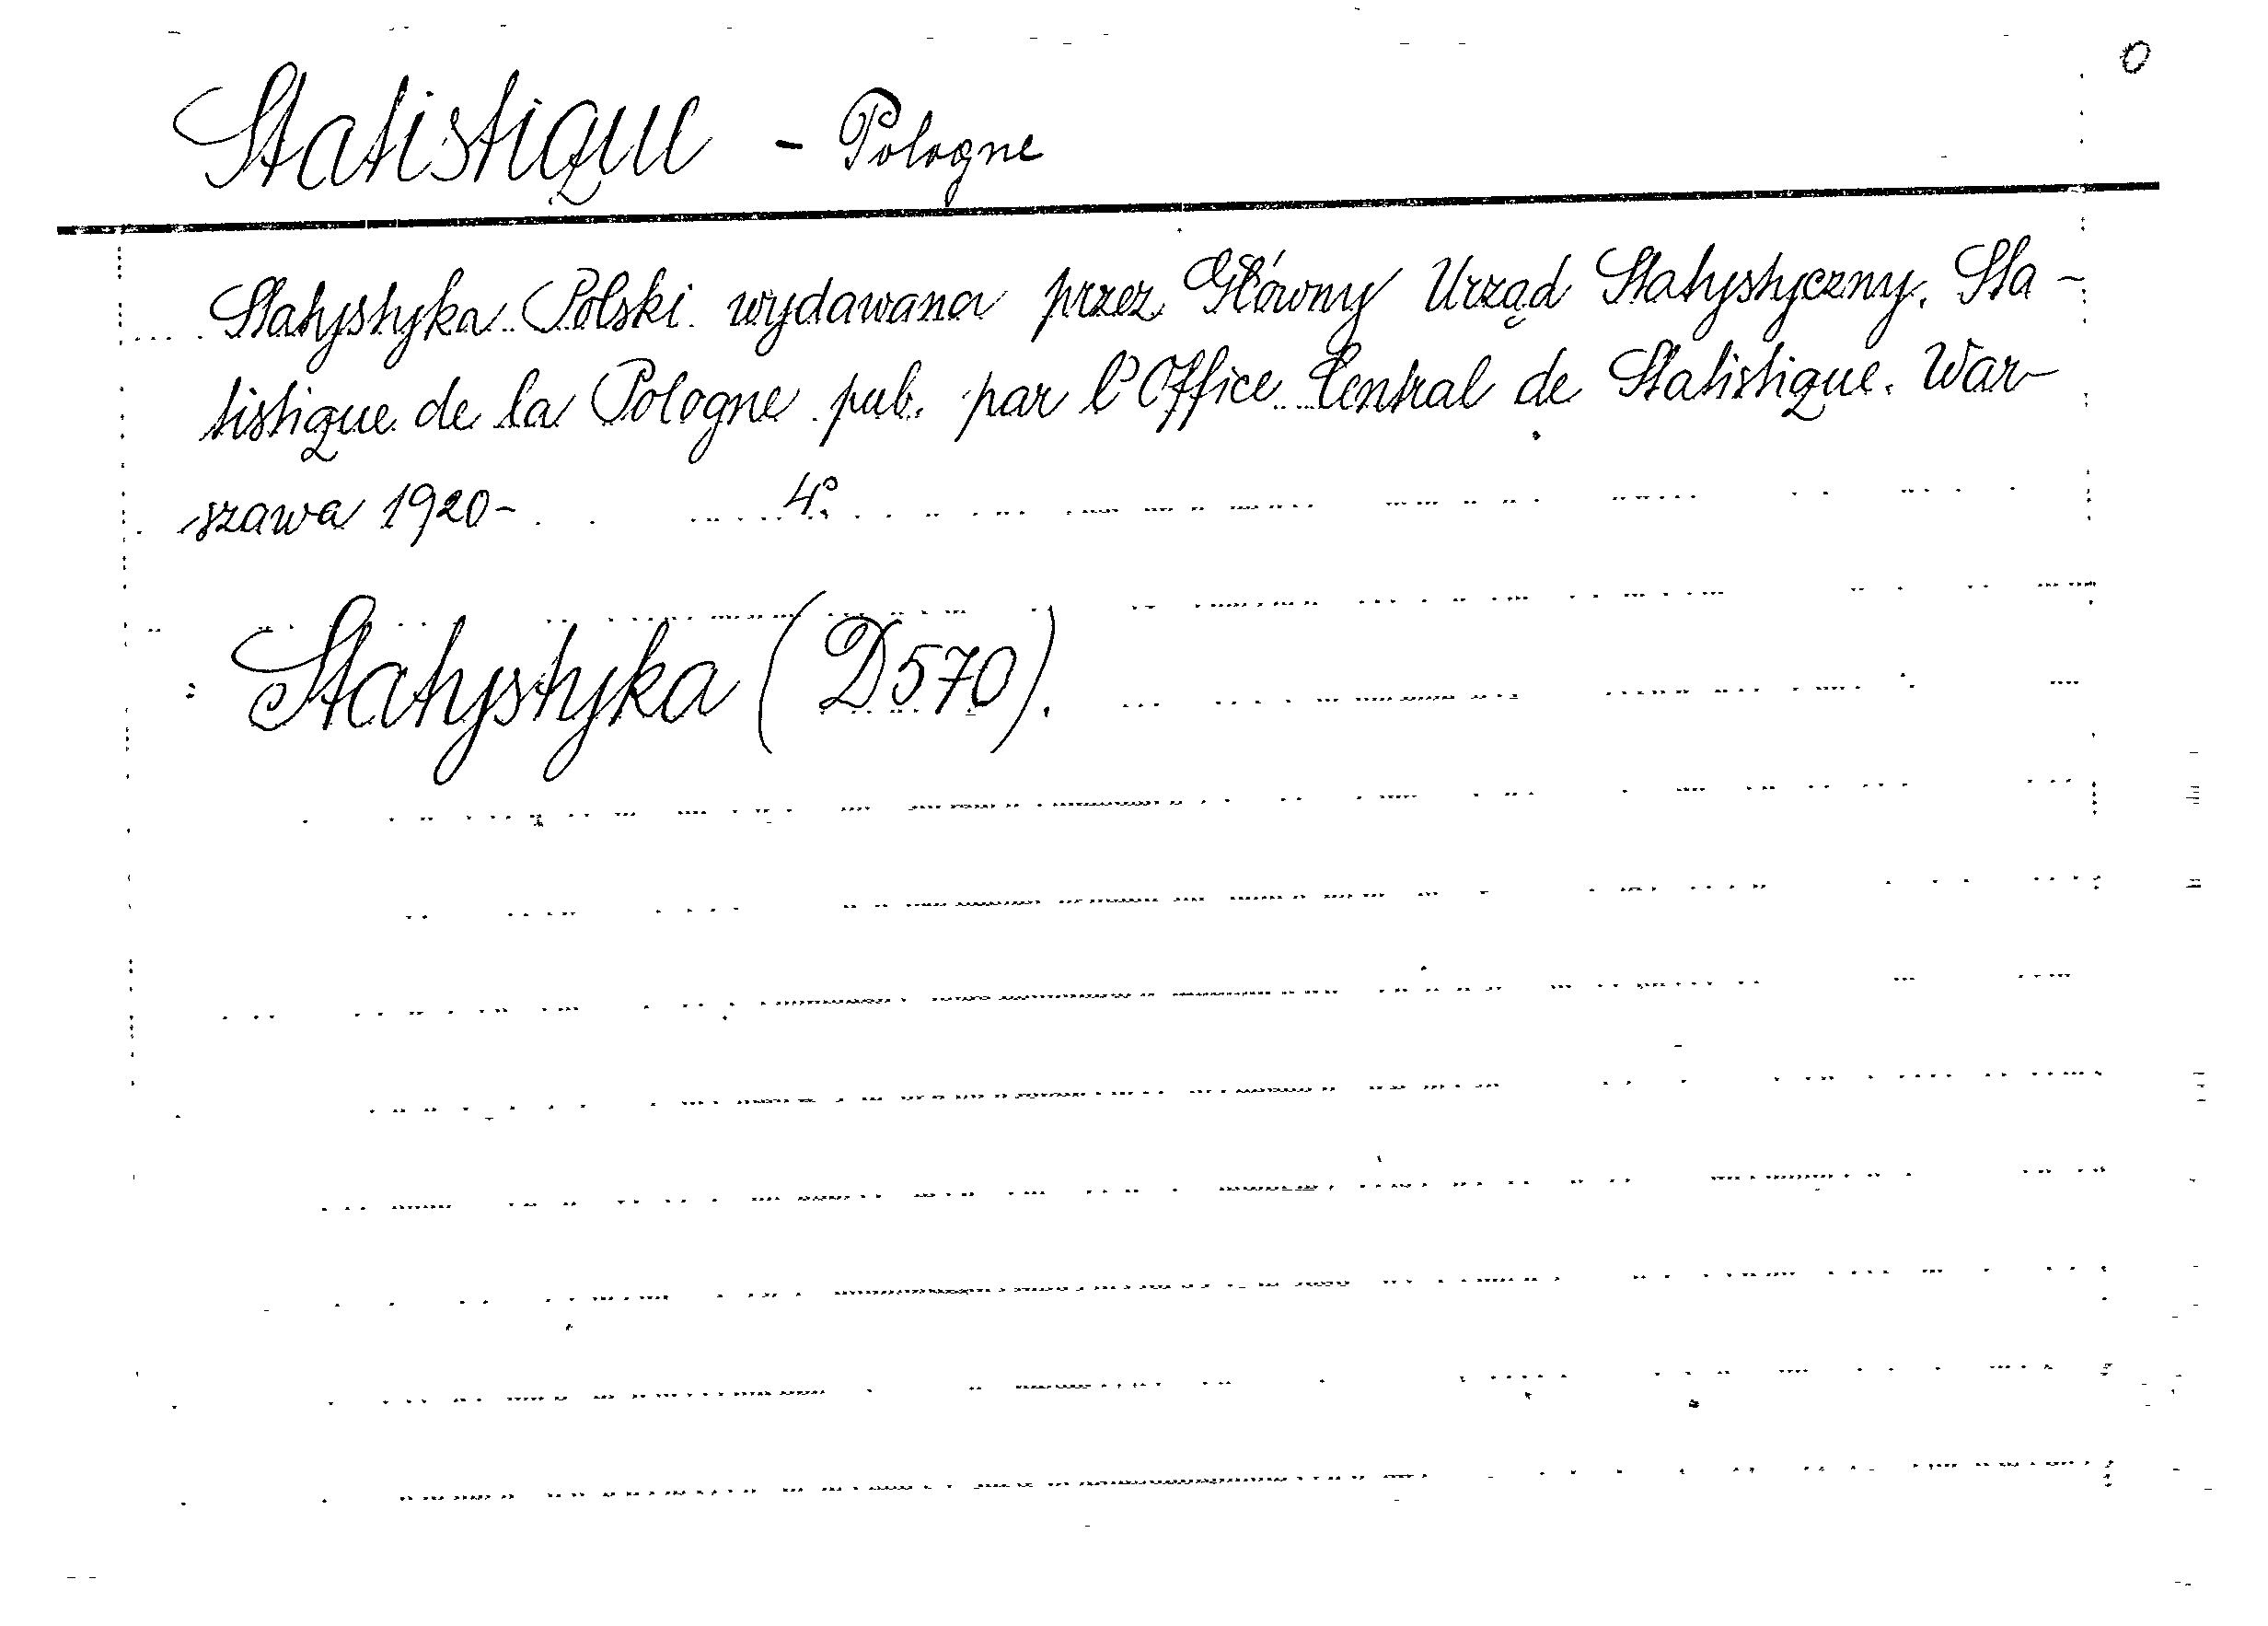 0
Statistique - Pologne
Statystyka Polski wydawana przez Główny Urząd Statystyczny. Sta-
tistique de la Pologne pub. par l'Office Central de Statistique. War-
szawa 1920- 4°.
Statystyka (D570).